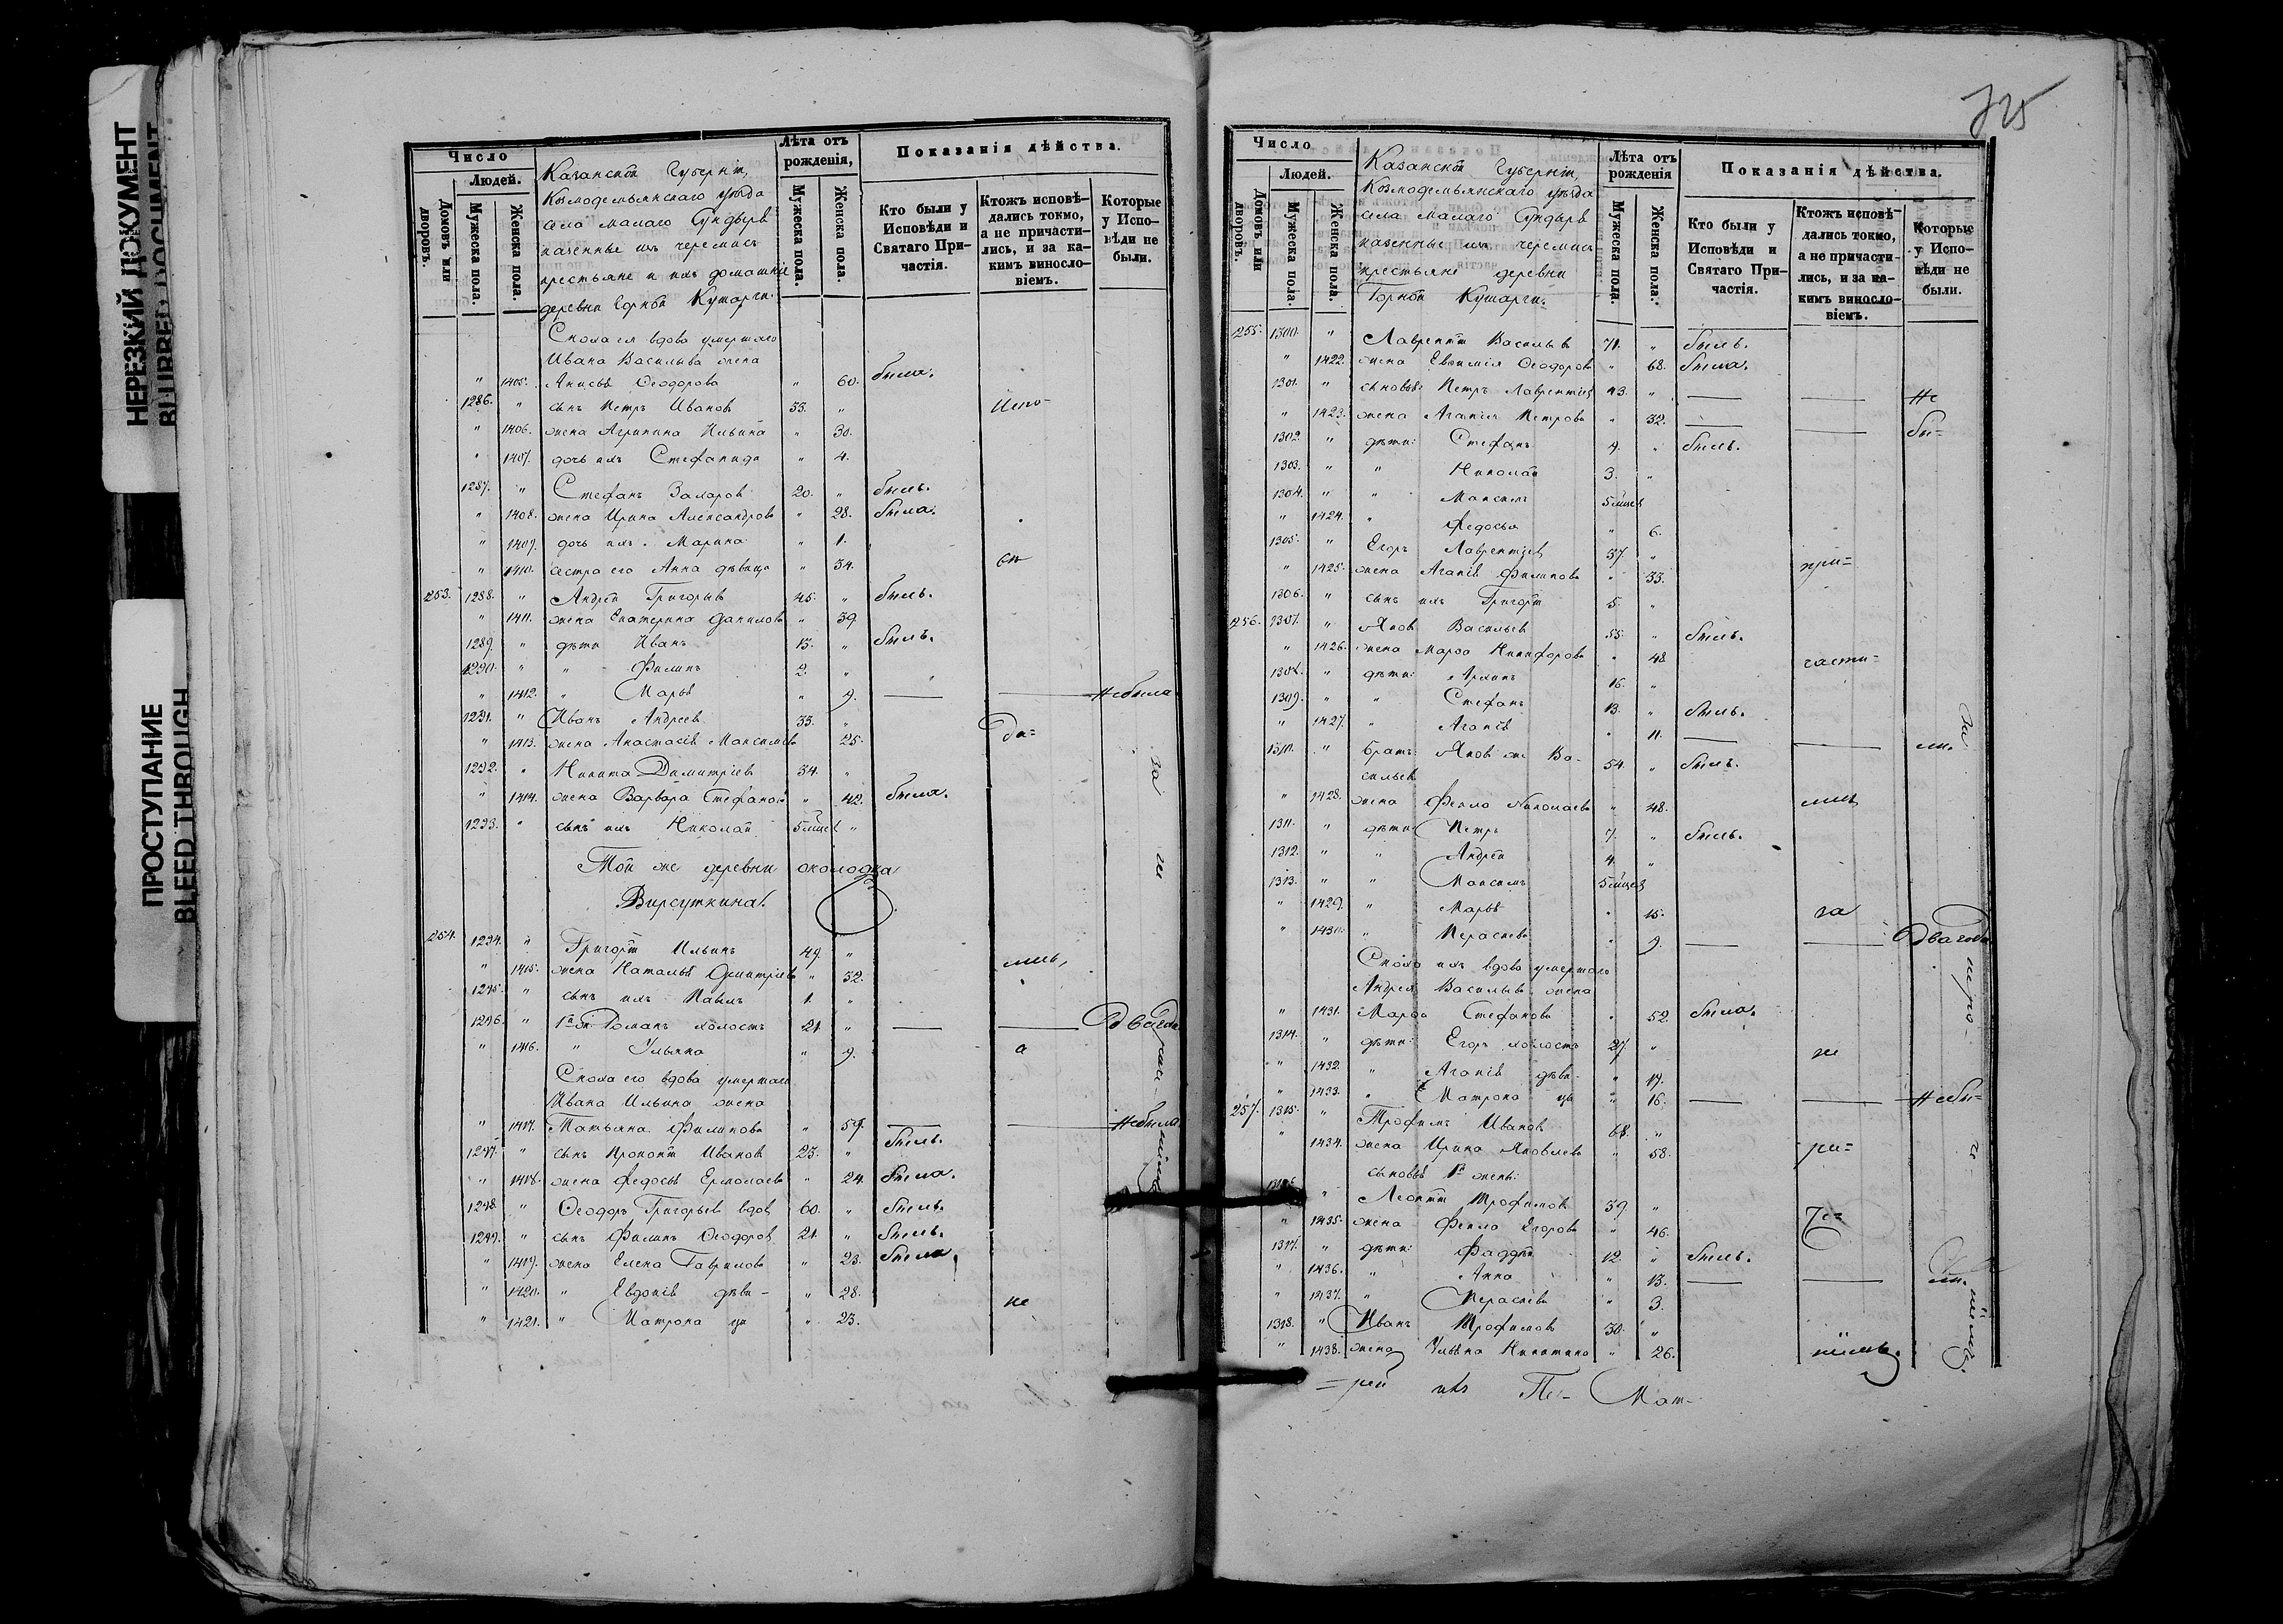 НЕРЕЗКИЙ ДОКУМЕНТ
BLURRED DOCUMENT
ПРОСТУПАНИЕ
BLEED THROUGH
Число
Людей.
Домовъ или дворовъ.
Мужеска пола.
Женска пола.
Казанской Губерніи,
Козмодемьянскаго уѣзда
села Малаго Сундыря
казенные изъ черемисъ
крестьяне и ихъ домашніе
деревни Горной Кушарги.
Лѣта отъ рожденія,
Мужеска пола.
Женска пола.
Показанія дѣйства.
Кто были у Исповѣди и Святаго Причастія.
Ктожъ исповѣдались токмо, а не причастились, и за какимъ винословіемъ.
Которые у Исповѣди не были.
Сноха ея вдова умершаго
Ивана Васильева жена
" 1405. Анисья Ѳеодорова " 60. была.
1286. " сынъ Петръ Иванов 33. " Испо-
" 1406. жена Агрипина Ильина " 30.
" 1407. дочь ихъ Стефанида " 4.
1287. " Стефанъ Захаров 20. " былъ.
" 1408. жена Ирина Александрова " 28. была.
" 1409. дочь ихъ Марина " 1.
" 1410. сестра его Анна дѣвица " 34.
253. 1288. " Андрей Григорьев 45. " былъ.
" 1411. жена Екатерина Данилова " 39.
1289. " дѣти Иванъ 13. " былъ.
1290. " " Филипъ 2. "
" 1412. " Марья " 9. Не была
1291. " Иванъ Андреев 33. "
" 1413. жена Анастасія Максимова 25.
1292. " Никита Димитріев 34. "
" 1414. жена Варвара Стефанова " 42. была.
1293. " сынъ ихъ Николай 5 мѣсяц "
Той же деревни околодка
Вирсуткина.
254. 1294. " Григорій Ильинъ 49. "
" 1415. жена Наталья Дмитріева " 32. лись,
1295. " сынъ ихъ Павелъ 1. "
1296. " 1й ж. Романъ холостъ 21. " Два года
" 1416. " Ульяна " 9. а
Сноха его вдова умершаго
Ивана Ильина жена
" 1417. Татьяна Филипова " 59. Не была
1297. " сынъ Прокопій Иванов 23. " былъ.
" 1418. жена Федосья Ермолаева " 24. была.
1298. " Ѳеодоръ Григорьев вдов 60. " былъ.
1299. " сынъ Филипъ Ѳеодоров 21. " былъ.
" 1419. жена Елена Гаврилова " 23. была,
" 1420. " Евдокія дѣви- " 28. не
" 1421. " Матрона ци " 23.
Число
Людей.
Домовъ или дворовъ.
Мужеска пола.
Женска пола.
Казанской Губерніи,
Козмодемьянскаго уѣзда
села Малаго Сундыря
казенные изъ черемисъ
крестьяне деревни
Горной Кушарги.
Лѣта отъ рожденія
Мужеска пола.
Женска пола.
Показанія дѣйства.
Кто были у Исповѣди и Святаго Причастія.
Ктожъ исповѣдались токмо, а не причастились, и за какимъ винословіемъ.
Которые у Исповѣди не были.
255. 1300. " Лаврентій Васильев 71. " былъ.
" 1422. жена Евфимія Ѳеодорова " 68. была.
1301. " сыновья: Петръ Лаврентіев 43. " Не
" 1423. жена Агапія Петрова " 32. бы-
1302. " дѣти: Стефанъ 9. " былъ.
1303. " " Николай 3. "
1304. " " Максимъ 5 мѣсяц
" 1424. " Федосья " 6.
1305. " Егоръ Лаврентіев 37. "
" 1425. жена Агапія Филипова " 33. при-
1306. " сынъ ихъ Григорій 5. "
256. 1307. " Яков Васильев 55. " былъ.
" 1426. жена Марфа Никифорова " 48. части-
1308. " дѣти: Архипъ 16. "
1309. " " Стефанъ 13. " былъ.
" 1427. " Агапія " 11. ли.
1310. " братъ Яков же Ва- 54. " былъ.
сильев
" 1428. жена Фекла Николаева " 48. лись
1311. " дѣти: Петръ 7. " былъ.
1312. " " Андрей 4. "
1313. " " Максимъ 5 мѣсяц
" 1429. " Марья " 15. за
" 1430. " Пераскева " 9. Два года
Сноха ихъ вдова умершаго
Андрея Васильева жена
" 1431. Марфа Стефанова " 52. была.
1314. " дѣти: Егоръ холостъ 27. "
" 1432. " Агапія дѣви- " 19.
" 1433. " Матрона ци " 16. Не бы-
257. 1315. " Трофимъ Иванов 68. "
" 1434. жена Ирина Яковлева " 58. ри-
сыновья 1й жены:
" Леонтій Трофимов 39. "
" 1435. жена Фекла Егорова " 46.
1317. " дѣти: Фаддей 12. " былъ.
" 1436. " Анна " 13. ли.
" 1437. " Пераскева " 3.
1318. " Иванъ Трофимов 30. "
" 1438. жена Ульяна Никитина " 26.
=рей изъ Пе- Мат-